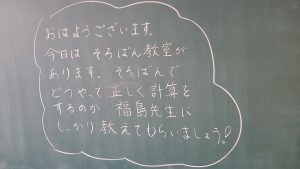 おはようございます。
今日は そろばん教室が
あります。そろばんで
どうやって 正しく計算を
するのか 福島先生に
しっかり教えてもらいましょう!